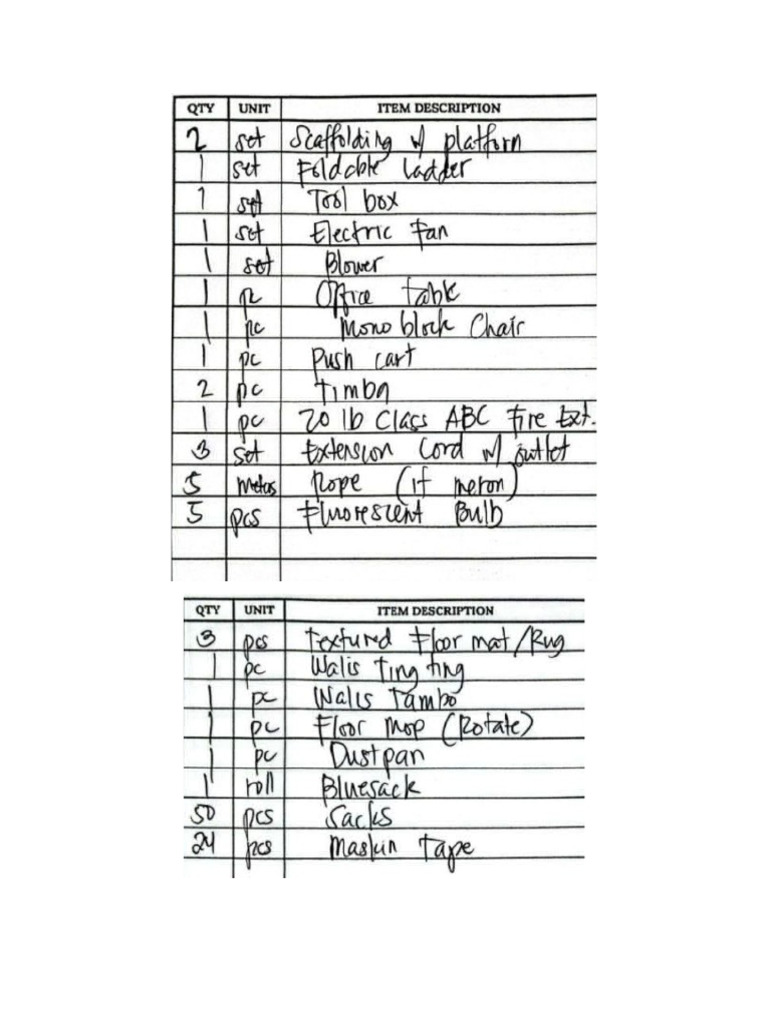 QTY UNIT ITEM DESCRIPTION
2 set Scaffolding w/ platform
1 set Foldable Ladder
1 set Tool box
1 set Electric Fan
1 set Blower
1 pc Office table
1 pc Mono block Chair
1 pc Push cart
2 pc Timba
1 pc 20 lb Class ABC Fire Ext.
3 set Extension Cord w/ outlet
5 Rope (if meron)
5 pcs Fluorescent Bulb
QTY UNIT ITEM DESCRIPTION
3 pcs Textured Floor mat/Rug
1 pc Walis Ting ting
1 pc Walis Tambo
1 pc Floor Mop (Rotate)
1 pc Dustpan
1 roll Bluesack
50 pcs Sacks
24 pcs Maskin Tape